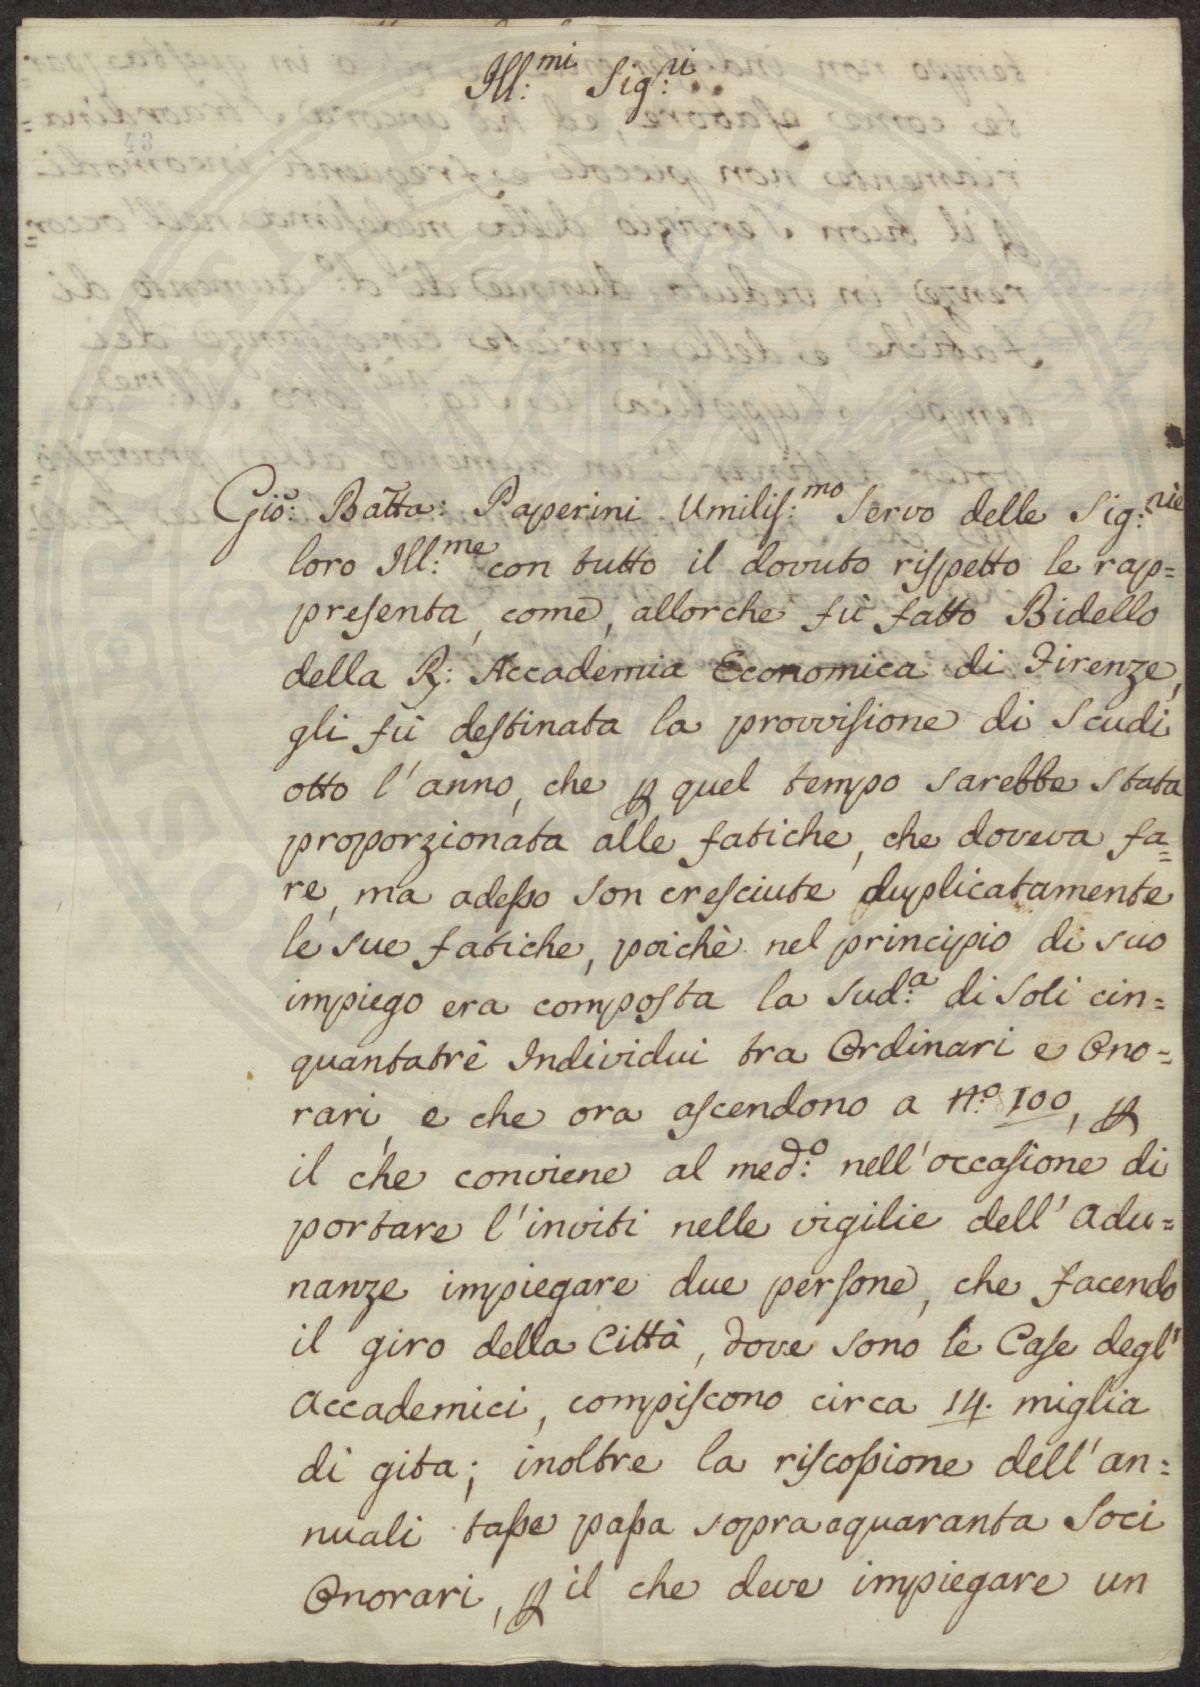 Ill:mi Sig:ri
43
Gio: Batta: Paperini Umiliss:mo Servo delle Sig:rie
loro Ill:me con tutto il dovuto rispetto le rap=
presenta, come, allorchè fù fatto Bidello
della R: Accademia Economica di Firenze,
gli fù destinata la provvisione di Scudi
otto l'anno, che ꝑ quel tempo sarebbe stata
proporzionata alle fatiche, che doveva fa=
re, ma adesso son cresciute duplicatamente
le sue fatiche, poichè nel principio di suo
impiego era composta la Sud:a di soli cin=
quantatrè Individui tra Ordinari e Ono=
rari, e che ora ascendono a N:o 100, ꝑ
il che conviene al med:o nell'occasione di
portare l'inviti nelle vigilie dell'Adu=
nanze impiegare due persone, che facendo
il giro della Città, dove sono le Case degl'
Accademici, compiscono circa 14. miglia
di gita; inoltre la riscossione dell'an=
nuali tasse passa sopra a quaranta Soci
Onorari, ꝑ il che deve impiegare un